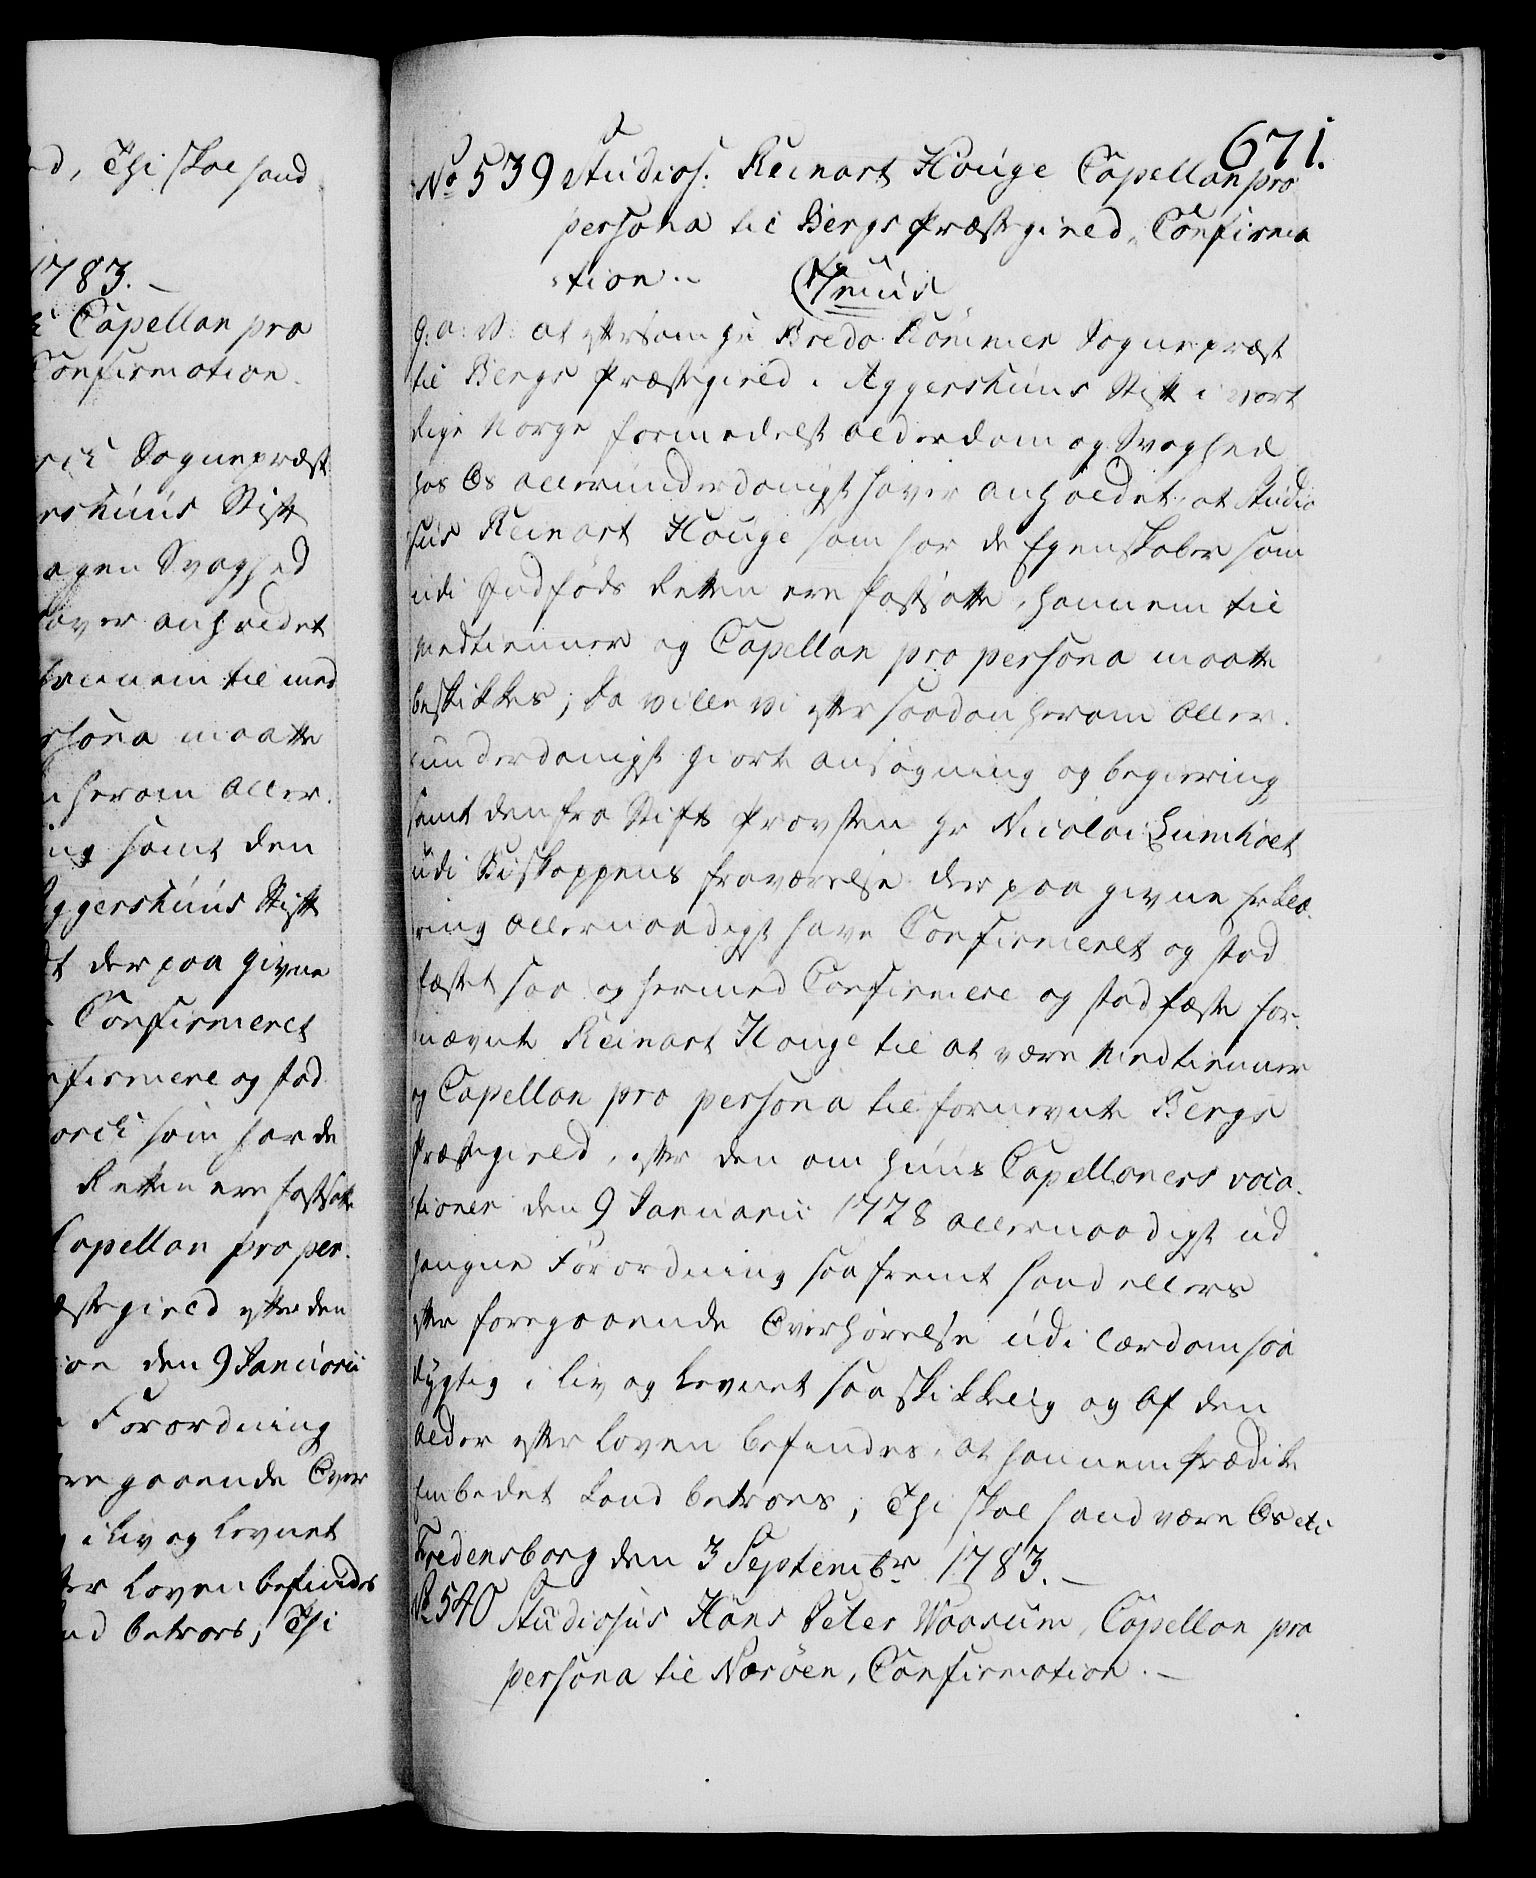 ed, Thi skal hand
1783.
Capellan pro
Confirmation.
Sognepræst
ershuus Stift
agen Svaghed
haver anholdet
hannem til med
rsona maatte
herom aller.
ing samt den
Aggershuus Stift
der paa givne
Confirmeret
nfirmere og stad
som har de
Retten ere fastsatte
Capellan pro per.
æstegield efter den
den 9 Januarii
Forordning
regaaende Over
i Liv og Levnet
ter Loven befindes
nd betroes, Thi
671.
No 539 Studios: Reinart Houge Capellan pro
persona til Bergs Præstegield, Confirma
tion.. Gratis
G: a: V: at eftersom Hr Bredo Rømmen Sognepræst
til Bergs Præstegield i Aggershuus Stift i vort
Rige Norge formedelst alderdom og Svaghed
hos Os allerunderdanigst haver anholdet, at Studio
sus Reinart Houge som har de Egenskaber som
udi Indføds Retten ere fastsatte, hannem til
Medtienner og Capellan pro persona maatte
beskikkes; da ville Vi efter saadan herom aller.
underdanigst giort ansøgning og begiering
samt den fra Stifts Provsten Hr Nicolai Lumholt
udi Biskoppens fraværelse der paa givne Erklæ.
ring allernaadigst have Confirmeret og stad
fæstet saa og hermed Confirmere og stadfæste for.
nævnte Reinart Houge til at være Medtienner
og Capellan pro persona til fornevnte Bergs
Præstegield, efter den om Huus Capellaners voca.
tioner den 9 Januarii 1728 allernaadigst ud
gangne Forordning saafremt hand ellers
efter foregaaende Overhørelse udi Lærdom saa
dygtig i Liv og Levnet saa skikkelig og af den
alder efter Loven befindes, at hannem Prædike
Embedet kand betroes; Thi skal hand være Os etc
Fredensborg den 3 Septembr 1783.
No 540 Studiosus Hans Peter Waarum, Capellan pro
persona til Nærøen, Confirmation.